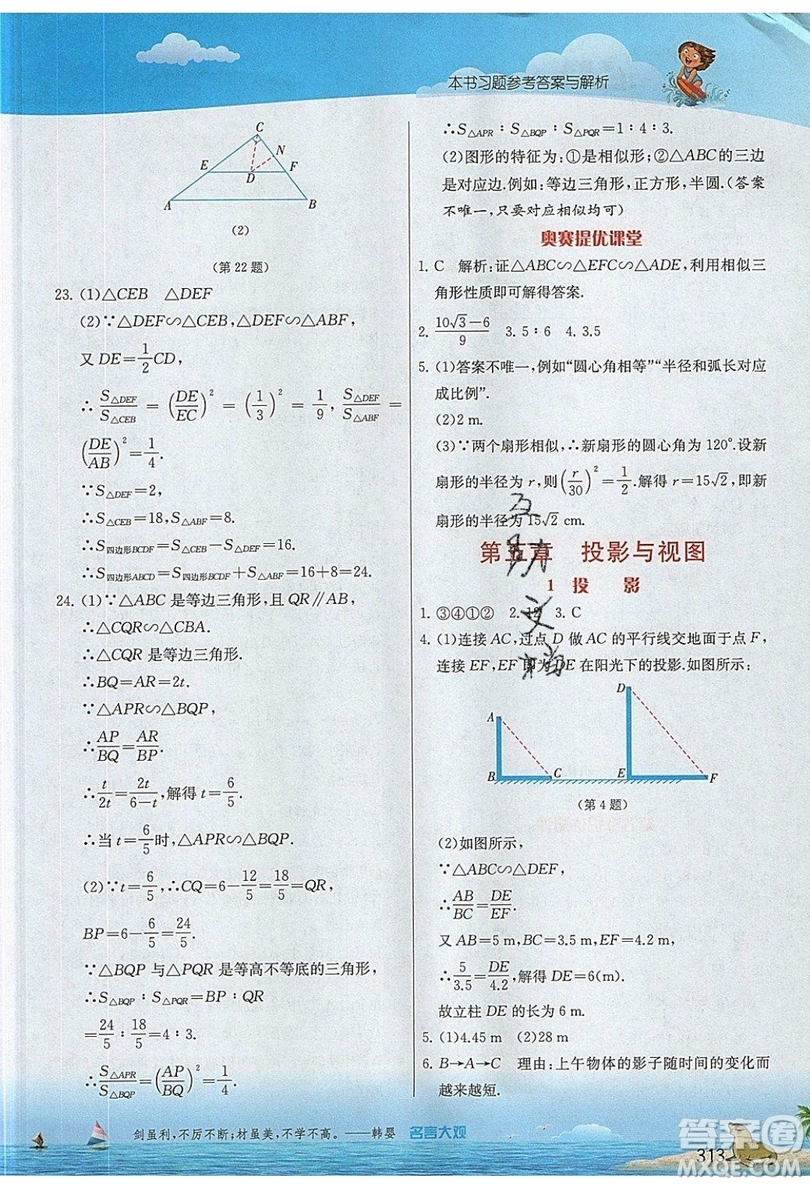 本书习题参考答案与解析
C
E
N
D
F
A
B
(2)
(第22题)
23. (1)△CEB △DEF
(2)∵△DEF∽△CEB,△DEF∽△ABF,
又DE=1/2CD,
∴S△DEF/S△CEB=(DE/EC)²=(1/3)²=1/9,S△DEF/S△ABF=
(DE/AB)²=1/4.
∵S△DEF=2,
∴S△CEB=18,S△ABF=8.
∴S四边形BCDF=S△CEB-S△DEF=16.
∴S四边形ABCD=S四边形BCDF+S△ABF=16+8=24.
24. (1)∵△ABC是等边三角形,且QR∥AB,
∴△CQR∽△CBA.
∴△CQR是等边三角形.
∴BQ=AR=2t.
∵△APR∽△BPQ,
∴AP/BQ=AR/BP.
∴t/2t=2t/(6-t),解得t=6/5.
∴当t=6/5时,△APR∽△BPQ.
(2)∵t=6/5,∴CR=6-12/5=18/5=QR,
BP=6-6/5=24/5.
∵△BQP与△PQR是等高不等底的三角形,
∴S△BQP∶S△PQR=BP∶QR
=24/5∶18/5=4∶3.
∴S△APR/S△BQP=(AP/BQ)²=1/4.
∴S△APR∶S△BQP∶S△PQR=1∶4∶3.
(2)图形的特征为:①是相似形;②△ABC的三边
是对应边.例如:等边三角形,正方形,半圆.(答案
不唯一,只要对应相似均可)
奥赛提优课堂
1. C 解析:证△ABC∽△EFC∽△ADE,利用相似三
角形性质即可解得答案.
2. (10√3-6)/9 3. 5∶6 4. 3.5
5. (1)答案不唯一,例如“圆心角相等”“半径和弧长对应
成比例”.
(2)2 m.
(3)∵两个扇形相似,∴新扇形的圆心角为120°.设新
扇形的半径为r,则(r/30)²=1/2.解得r=15√2,即新
扇形的半径为15√2 cm.
第五章 投影与视图
1 投 影
1. ③④①② 2. 3. C
4. (1)连接AC,过点D做AC的平行线交地面于点F,
连接EF,EF即为DE在阳光下的投影.如图所示:
D
A
B C E F
(第4题)
(2)如图所示,
∵△ABC∽△DEF,
∴AB/BC=DE/EF.
又AB=5 m,BC=3.5 m,EF=4.2 m,
∴5/3.5=DE/4.2,解得DE=6(m).
故立柱DE的长为6 m.
5. (1)4.45 m (2)28 m
6. B→A→C 理由:上午物体的影子随时间的变化而
越来越短.
互
助
文
档
剑虽利,不厉不断;材虽美,不学不高。——韩婴 名言大观
313
答案圈
MXQE.COM